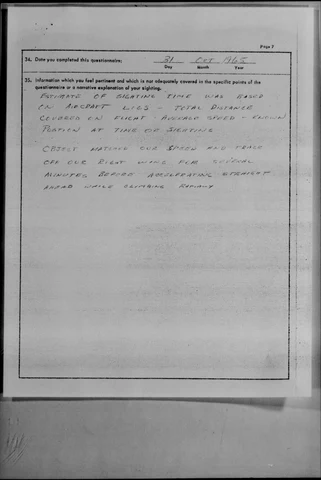 Page 8
34. Date you completed this questionnaire: 31 OCT 1965
Day Month Year
35. Information which you feel pertinent and which is not adequately covered in the specific points of the
questionnaire or a narrative explanation of your sighting.
ESTIMATE OF SIGHTING TIME WAS BASED
ON AIRCRAFT LOGS - TOTAL DISTANCE
COVERED ON FLIGHT - AVERAGE SPEED - KNOWN
POSITION AT TIME OF SIGHTING
OBJECT MATCHED OUR SPEED AND
OFF OUR RIGHT WING FOR SEVERAL
MINUTES BEFORE ACCELERATING STRAIGHT
AHEAD WHILE CLIMBING RAPIDLY